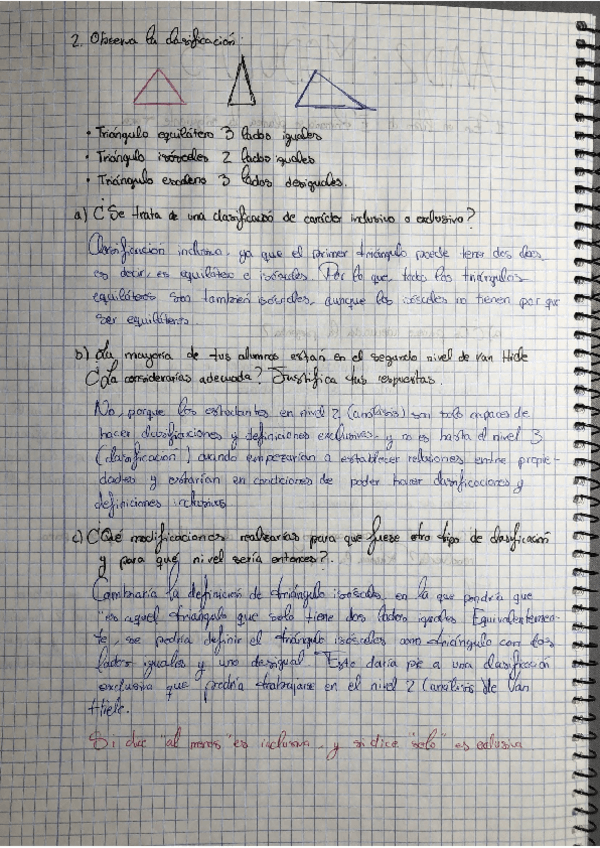 2. Observa la clasificación:
• Triángulo equilátero 3 lados iguales
• Triángulo isósceles 2 lados iguales
• Triángulo escaleno 3 lados desiguales.
a) ¿Se trata de una clasificación de carácter inclusivo o exclusivo?
Clasificación inclusiva, ya que el primer triángulo puede tener dos
es decir, es equilátero e isósceles. Por lo que todos los triángulos
equiláteros son también isósceles, aunque los isósceles no tienen por que
ser equiláteros.
b) La mayoría de tus alumnos están en el segundo nivel de Van Hiele
¿La considerarías adecuada? Justifica tus respuestas.
No, porque los estudiantes en nivel 2 (análisis) son solo capaces de
hacer clasificaciones y definiciones exclusivas, y no es hasta el nivel 3
(clasificación) cuando empezarían a establecer relaciones entre propie-
dades y estarían en condiciones de poder hacer clasificaciones y
definiciones inclusivas
c) ¿Qué modificaciones realizarías para que fuese otro tipo de clasificación
y para qué nivel sería entonces?.
Cambiaría la definición de triángulo isósceles, en la que pondría que
"es aquel triángulo que solo tiene dos lados iguales. Equivalentemen-
te, se podría definir el triángulo isósceles como triángulo con dos
lados iguales y uno desigual". Este daría pie a una clasificación
exclusiva que podría trabajarse en el nivel 2 (análisis) de Van
Hiele.
Si dice "al menos" es inclusiva, y si dice "solo" es exclusiva